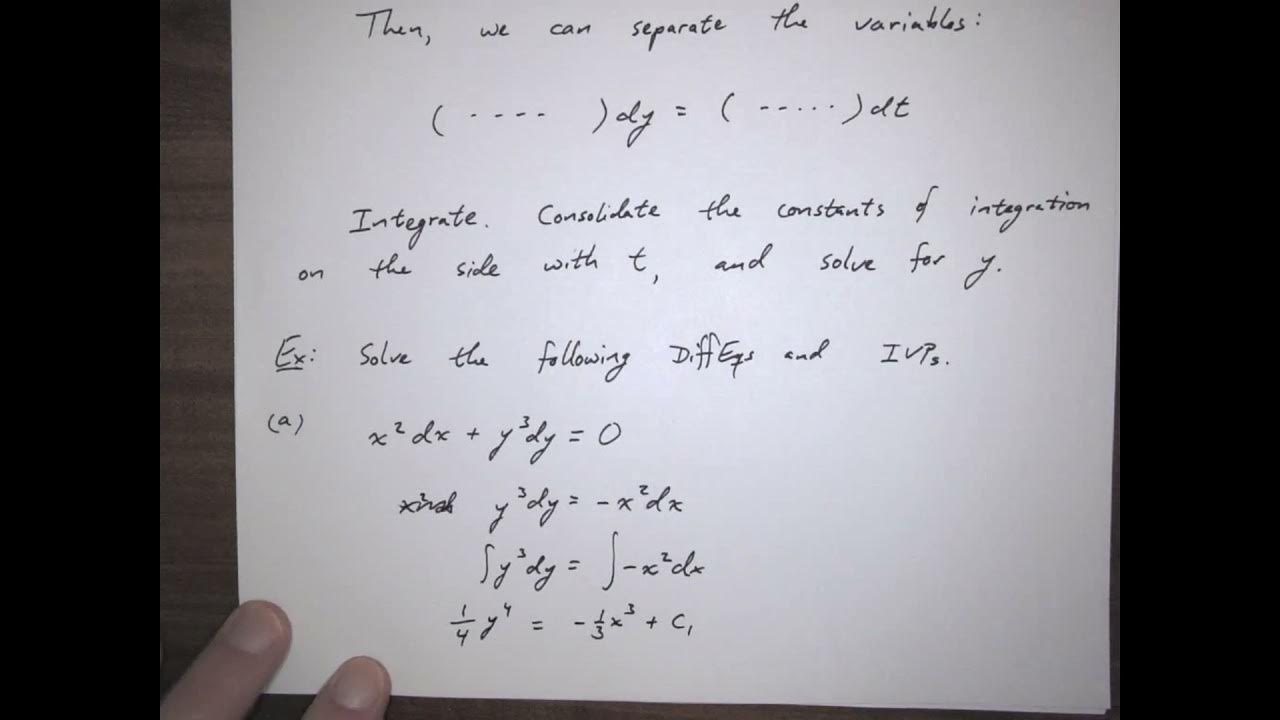 Then, we can separate the variables:
( ---- ) dy = ( ----- ) dt
Integrate. Consolidate the constants of integration
on the side with t, and solve for y.
Ex: Solve the following DiffEqs and IVPs.
(a) x² dx + y³ dy = 0
y³ dy = -x² dx
∫ y³ dy = ∫ -x² dx
1/4 y⁴ = -1/3 x³ + C₁